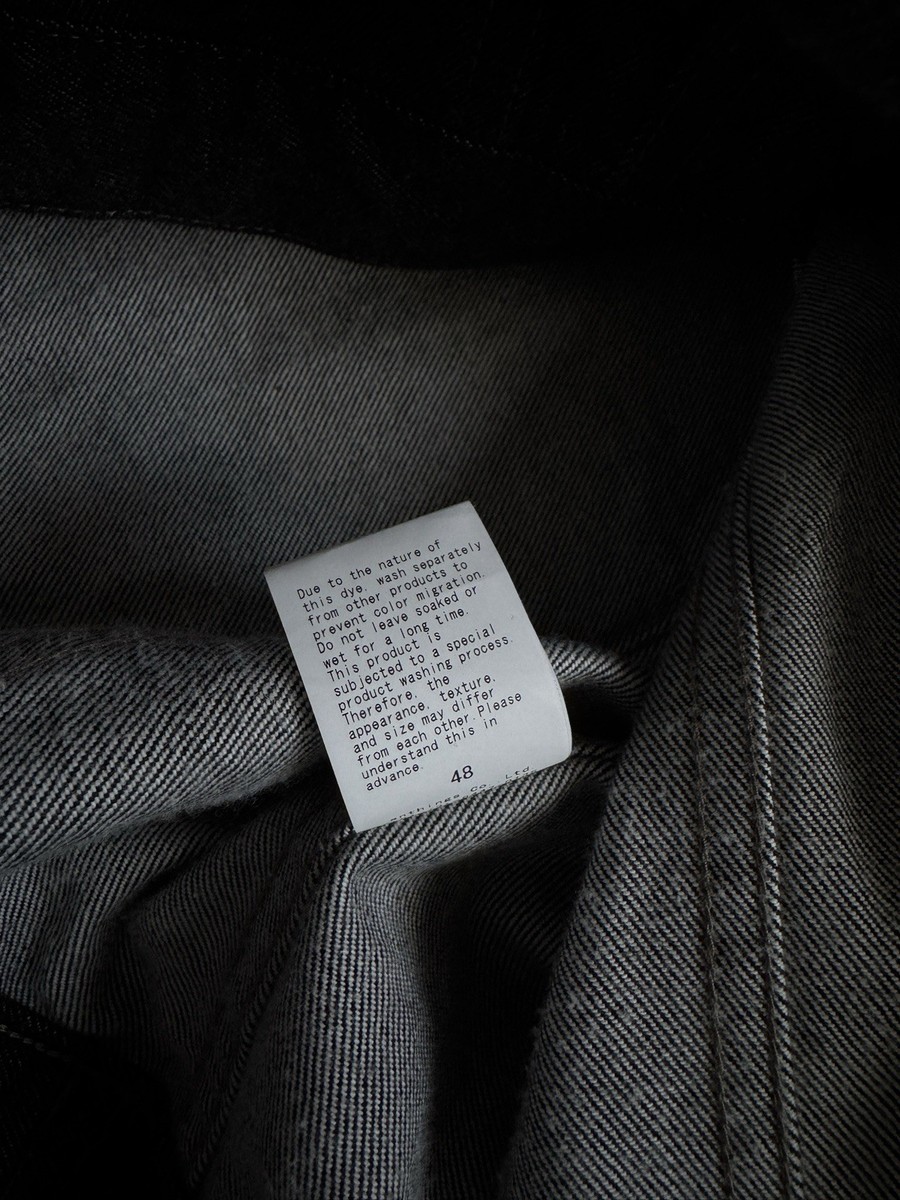 Due to the nature of
this dye, wash separately
from other products to
prevent color migration.
Do not leave soaked or
wet for a long time.
This product is
subjected to a special
product washing process.
Therefore, the
appearance, texture,
and size may differ
from each other.Please
understand this in
advance.
48
Co., Ltd